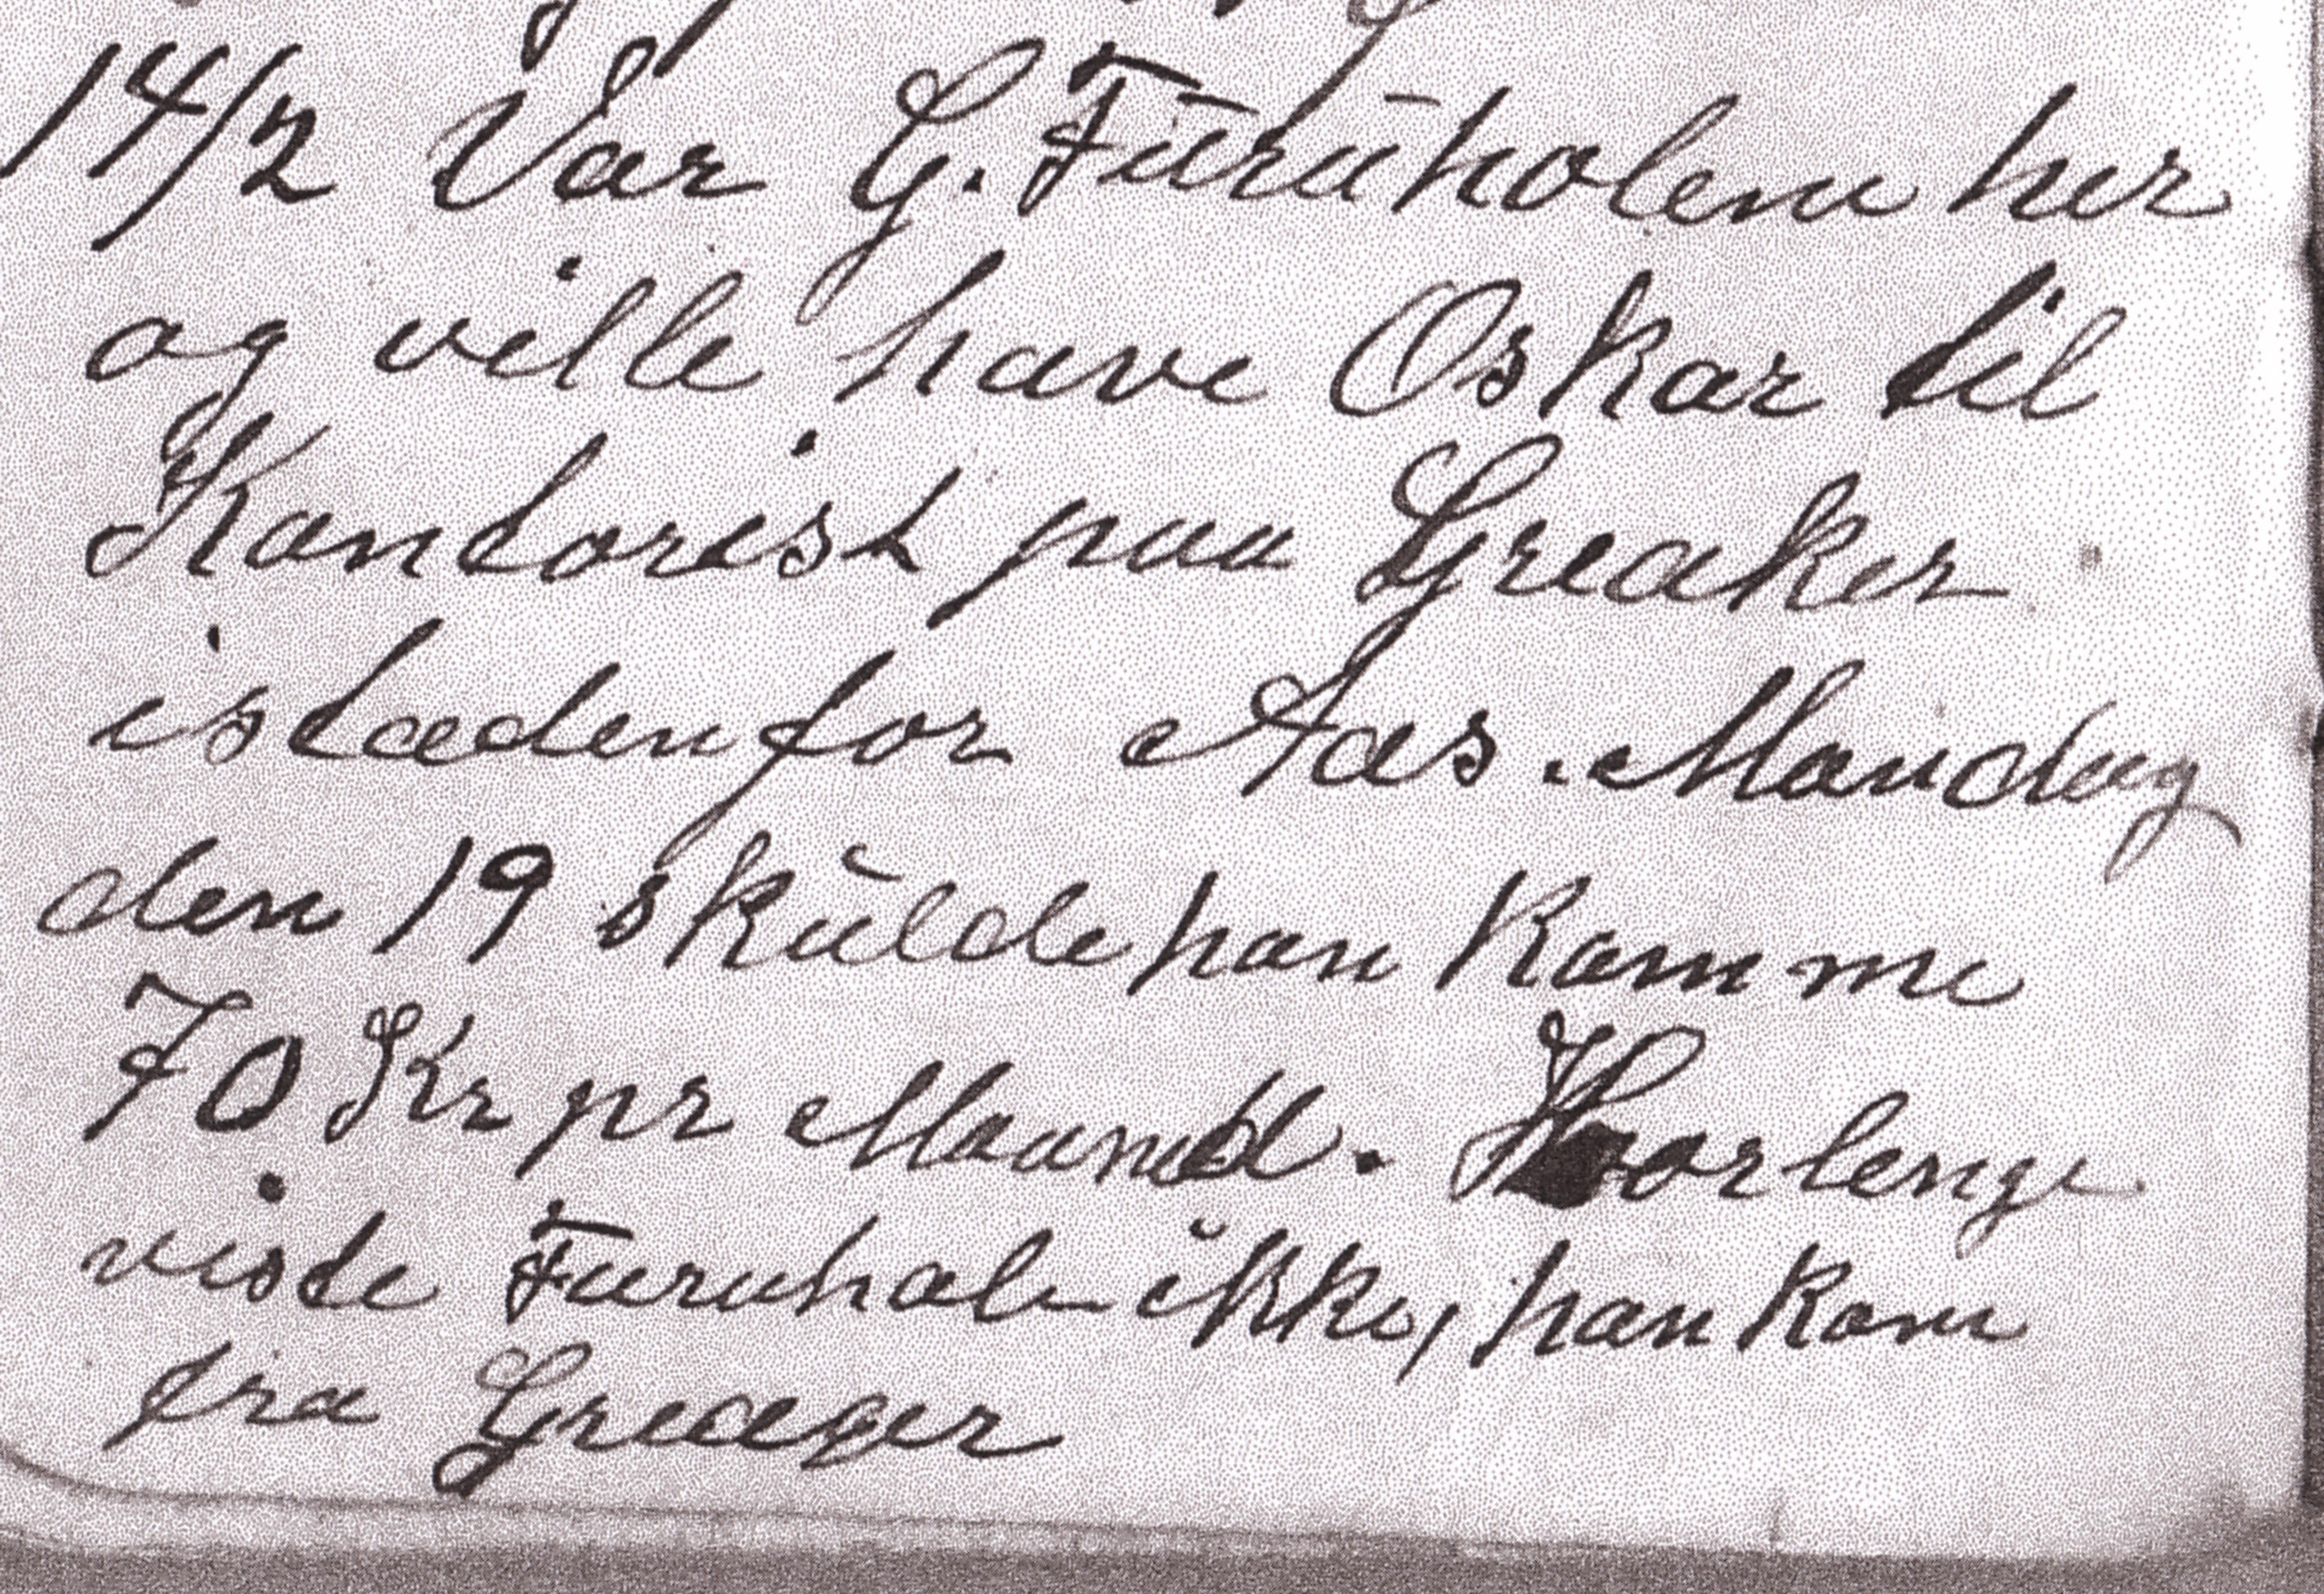 14/2 Var G. Furuholem her
og ville have Oskar til
Kontorist paa Greaker
istædenfor Aas. Mandag
den 19 skulde han komme
70 Kr pr Maaned. Hvorlenge
viste Furuhol ikke, han kom
fra Greager